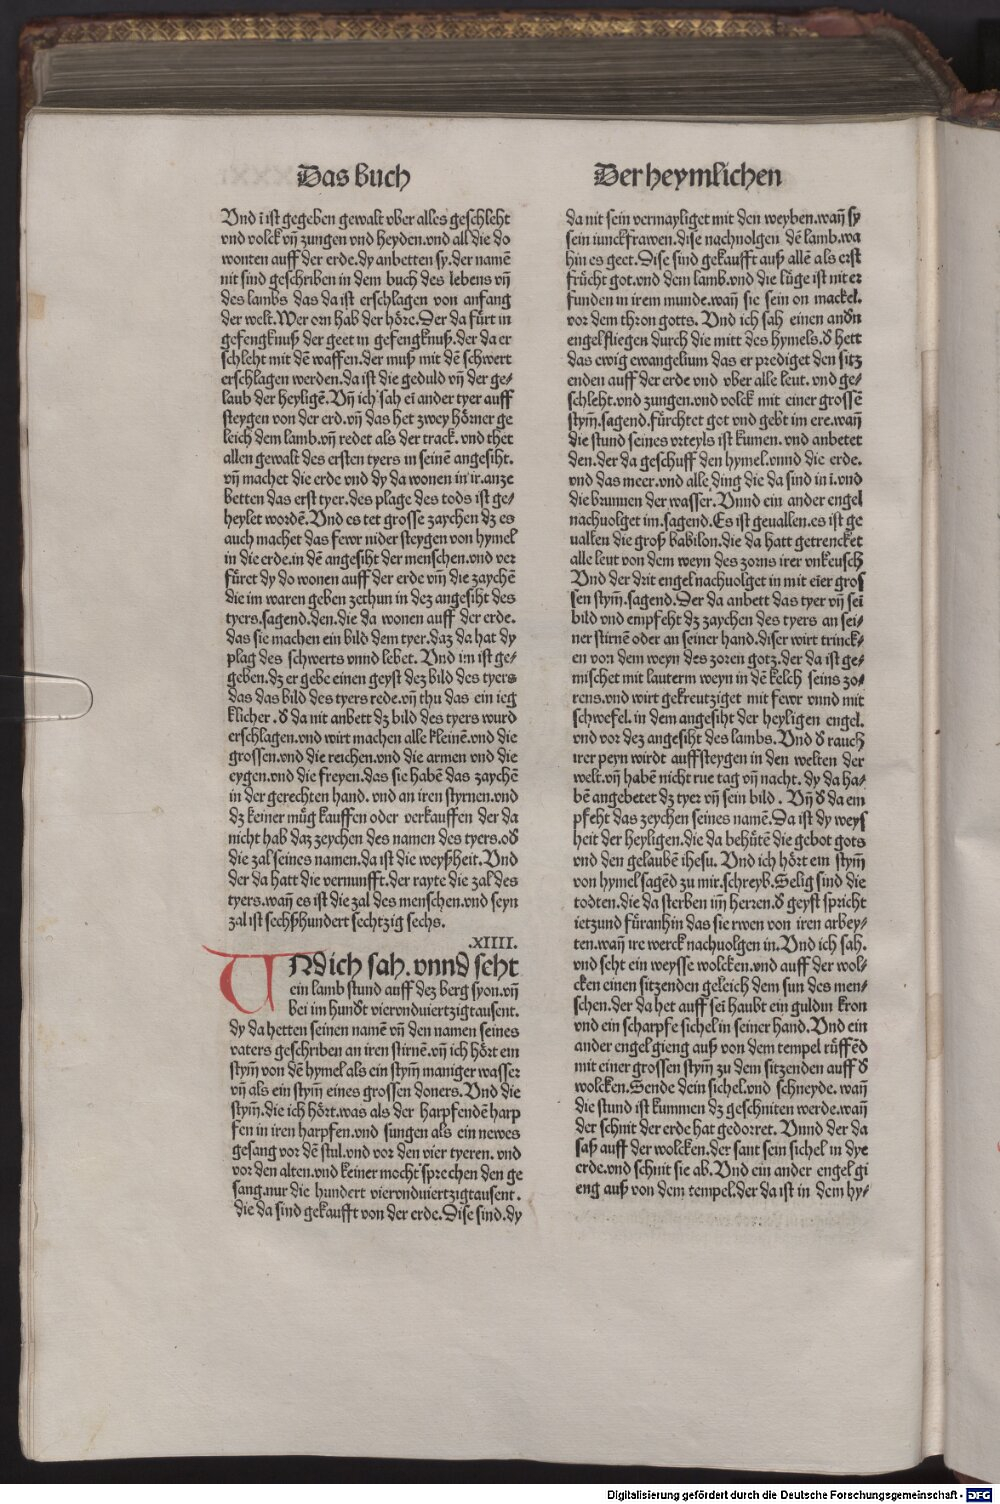 Das Buch
Der heymlichen
Vnd ī ist gegeben gewalt vber alles geschleht
vnd volck vñ zungen vnd heyden. vnd all die do
wonten auff der erde. dy anbetten sy. der namē
nit sind geschriben in dem buch des lebens vñ
des lambs das da ist erschlagen von anfang
der welt. Wer orn hab der höre. Der da fürt in
gefengknuß der geet in gefengknuß. der da er
schleht mit dē waffen. der muß mit dē schwert
erschlagen werden. da ist die geduld vñ der ge⸗
laub der heyligē. Vñ ich sah eī ander tyer auff
steygen von der erd. vñ das het zwey hörner ge
leich dem lamb. vñ redet als der track. vnd thet
allen gewalt des ersten tyers in seinē angesiht.
vñ machet die erde vnd dy da wonen in ir. anze
betten das erst tyer. des plage des tods ist ge⸗
heylet wordē. Vnd es tet grosse zaychen dz es
auch machet das fewr nider steygen von hymel
in die erde. in dē angesiht der menschen. vnd ver
füret dy do wonen auff der erde vnn̄ die zaychē
die im waren geben zethun in dez angesiht des
tyers. sagend. den. die da wonen auff der erde.
das sie machen ein bild dem tyer. daz da hat dy
plag des schwerts vnnd lebet. Vnd im ist ge⸗
geben. dz er gebe einen geyst dez bild des tyers
das das bild des tyers rede. vñ thu das ein ieg
klicher. d̕ da nit anbett dz bild des tyers wurd
erschlagen. vnd wirt machen alle kleinē. vnd die
grossen. vnd die reichen. vnd die armen vnd die
eygen. vnd die freyen. das sie habē das zaychē
in der gerechten hand. vnd an iren styrnen. vnd
dz keiner müg kauffen oder verkauffen der da
nicht hab daz zeychen des namen des tyers. od̕
die zal seines namen. da ist die weyßheit. Vnd
der da hatt die vernunfft. der rayte die zal des
tyers. wañ es ist die zal des menschen. vnd seyn
zal ist sechßhundert sechtzig sechs.
.XIIII.
VNd ich sah. vnnd seht
ein lamb stund auff dez berg syon. vñ
bei im hund̕t viervnduiertzigtausent.
dy da hetten seinen namē vñ den namen seines
vaters geschriben an iren stirnē. vñ ich hört ein
stym̄ von dē hymel als ein stym̄ maniger wasser
vñ als ein stym̄ eines grossen doners. Vnd die
stym̄. die ich hört. was als der harpfendē harp
fen in iren harpfen. vnd sungen als ein newes
gesang vor dē stul. vnd vor den vier tyeren. vnd
vor den alten. vnd keiner mocht sprechen den ge
sang. nur die hundert viervnduiertzigtausent.
die da sind gekaufft von der erde. Dise sind. dy
da nit sein vermayliget mit den weyben. wañ sy
sein iunckfrawen. dise nachuolgen dē lamb. wa
hin es geet. Dise sind gekaufft auß allē als erst
frücht got. vnd dem lamb. vnd die lüge ist nit er
funden in irem munde. wañ sie sein on mackel.
vor dem thron gotts. Vnd ich sah einen and̕n
engel fliegen durch die mitt des hymels. d̕ hett
das ewig ewangelium das er prediget den sitz
enden auff der erde vnd vber alle leut. vnd ge⸗
schleht. vnd zungen. vnd volck mit einer grossē
stym̄. sagend. fürchtet got vnd gebt im ere. wañ
die stund seines vrteyls ist kumen. vnd anbetet
den. der da geschuff den hymel. vnnd die erde.
vnd das meer. vnd alle ding die da sind in ī. vnd
die brunnen der wasser. Vnnd ein ander engel
nachuolget im. sagend. Es ist geuallen. es ist ge
uallen die groß babilon. die da hatt getrencket
alle leut von dem weyn des zorns irer vnkeusch
Vnd der drit engel nachuolget in mit eīer gros
sen stym̄. sagend. Der da anbett das tyer vñ sei
bild vnd empfeht dz zaychen des tyers an sei⸗
ner stirnē oder an seiner hand. diser wirt trinck⸗
en von dem weyn des zoren gotz. der da ist ge⸗
mischet mit lauterm weyn in dē kelch seins zo⸗
rens. vnd wirt gekreutziget mit fewr vnnd mit
schwefel. in dem angesiht der heyligen engel.
vnd vor dez angesiht des lambs. Vnd d̕ rauch
irer peyn wirdt auffsteygen in den welten der
welt. vñ habē nicht rue tag vñ nacht. dy da ha⸗
bē angebetet dz tyer vñ sein bild. Vñ d̕ da em
pfeht das zeychen seines namē. Da ist dy weys
heit der heyligen. die da behütē die gebot gots
vnd den gelaubē ihesu. Vnd ich hört ein stym̄
von hymel sagēd zu mir. schreyb. Selig sind die
todten. die da sterben im̄ herren. d̕ geyst spricht
ietzund füranhin das sie rwen von iren arbey⸗
ten. wañ ire werck nachuolgen in. Vnd ich sah.
vnd seht ein weysse wolcken. vnd auff der wol⸗
cken einen sitzenden geleich dem sun des men⸗
schen. der da het auff seī haubt ein guldin kron
vnd ein scharpfe sichel in seiner hand. Vnd ein
ander engel gieng auß von dem tempel rüffēd
mit einer grossen stym̄ zu dem sitzenden auff d̕
wolcken. Sende dein sichel. vnd schneyde. wañ
die stund ist kummen dz geschniten werde. wañ
der schnit der erde hat gedorret. Vnnd der da
saß auff der wolcken. der sant sein sichel in dye
erde. vnd schnit sie ab. Vnd ein ander engel gi
eng auß von dem tempel. der da ist in dem hy⸗
Digitalisierung gefördert durch die Deutsche Forschungsgemeinschaft - DFG